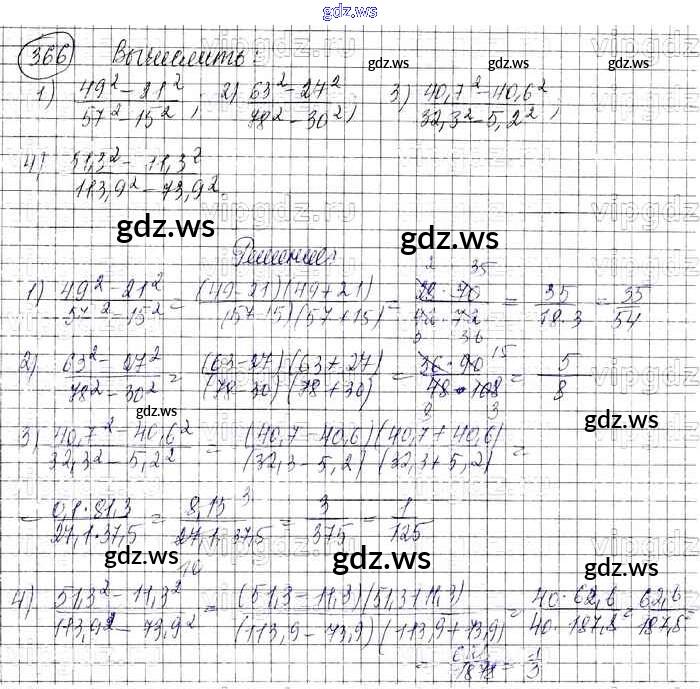 gdz.ws
366 Вычислить:
1) (49² − 21²)/(57² − 15²); 2) (63² − 27²)/(78² − 30²); 3) (40,7² − 40,6²)/(32,3² − 5,2²);
gdz.ws gdz.ws
4) (51,3² − 11,3²)/(113,9² − 73,9²).
gdz.ws gdz.ws
Решение:
1) (49² − 21²)/(57² − 15²) = (49−21)(49+21)/(57−15)(57+15) = 28·70/42·72 = 35/18·3 = 35/54
2) (63² − 27²)/(78² − 30²) = (63−27)(63+27)/(78−30)(78+30) = 36·90/48·108 = 5/8
gdz.ws gdz.ws
3) (40,7² − 40,6²)/(32,3² − 5,2²) = (40,7−40,6)(40,7+40,6)/(32,3−5,2)(32,3+5,2) =
= 0,1·81,3/27,1·37,5 = 8,13/27,1·37,5 = 3/375 = 1/125
gdz.ws gdz.ws gdz.ws
4) (51,3² − 11,3²)/(113,9² − 73,9²) = (51,3−11,3)(51,3+11,3)/(113,9−73,9)(113,9+73,9) = 40·62,6/40·187,8 = 62,6/187,8
= 626/1878 = 1/3